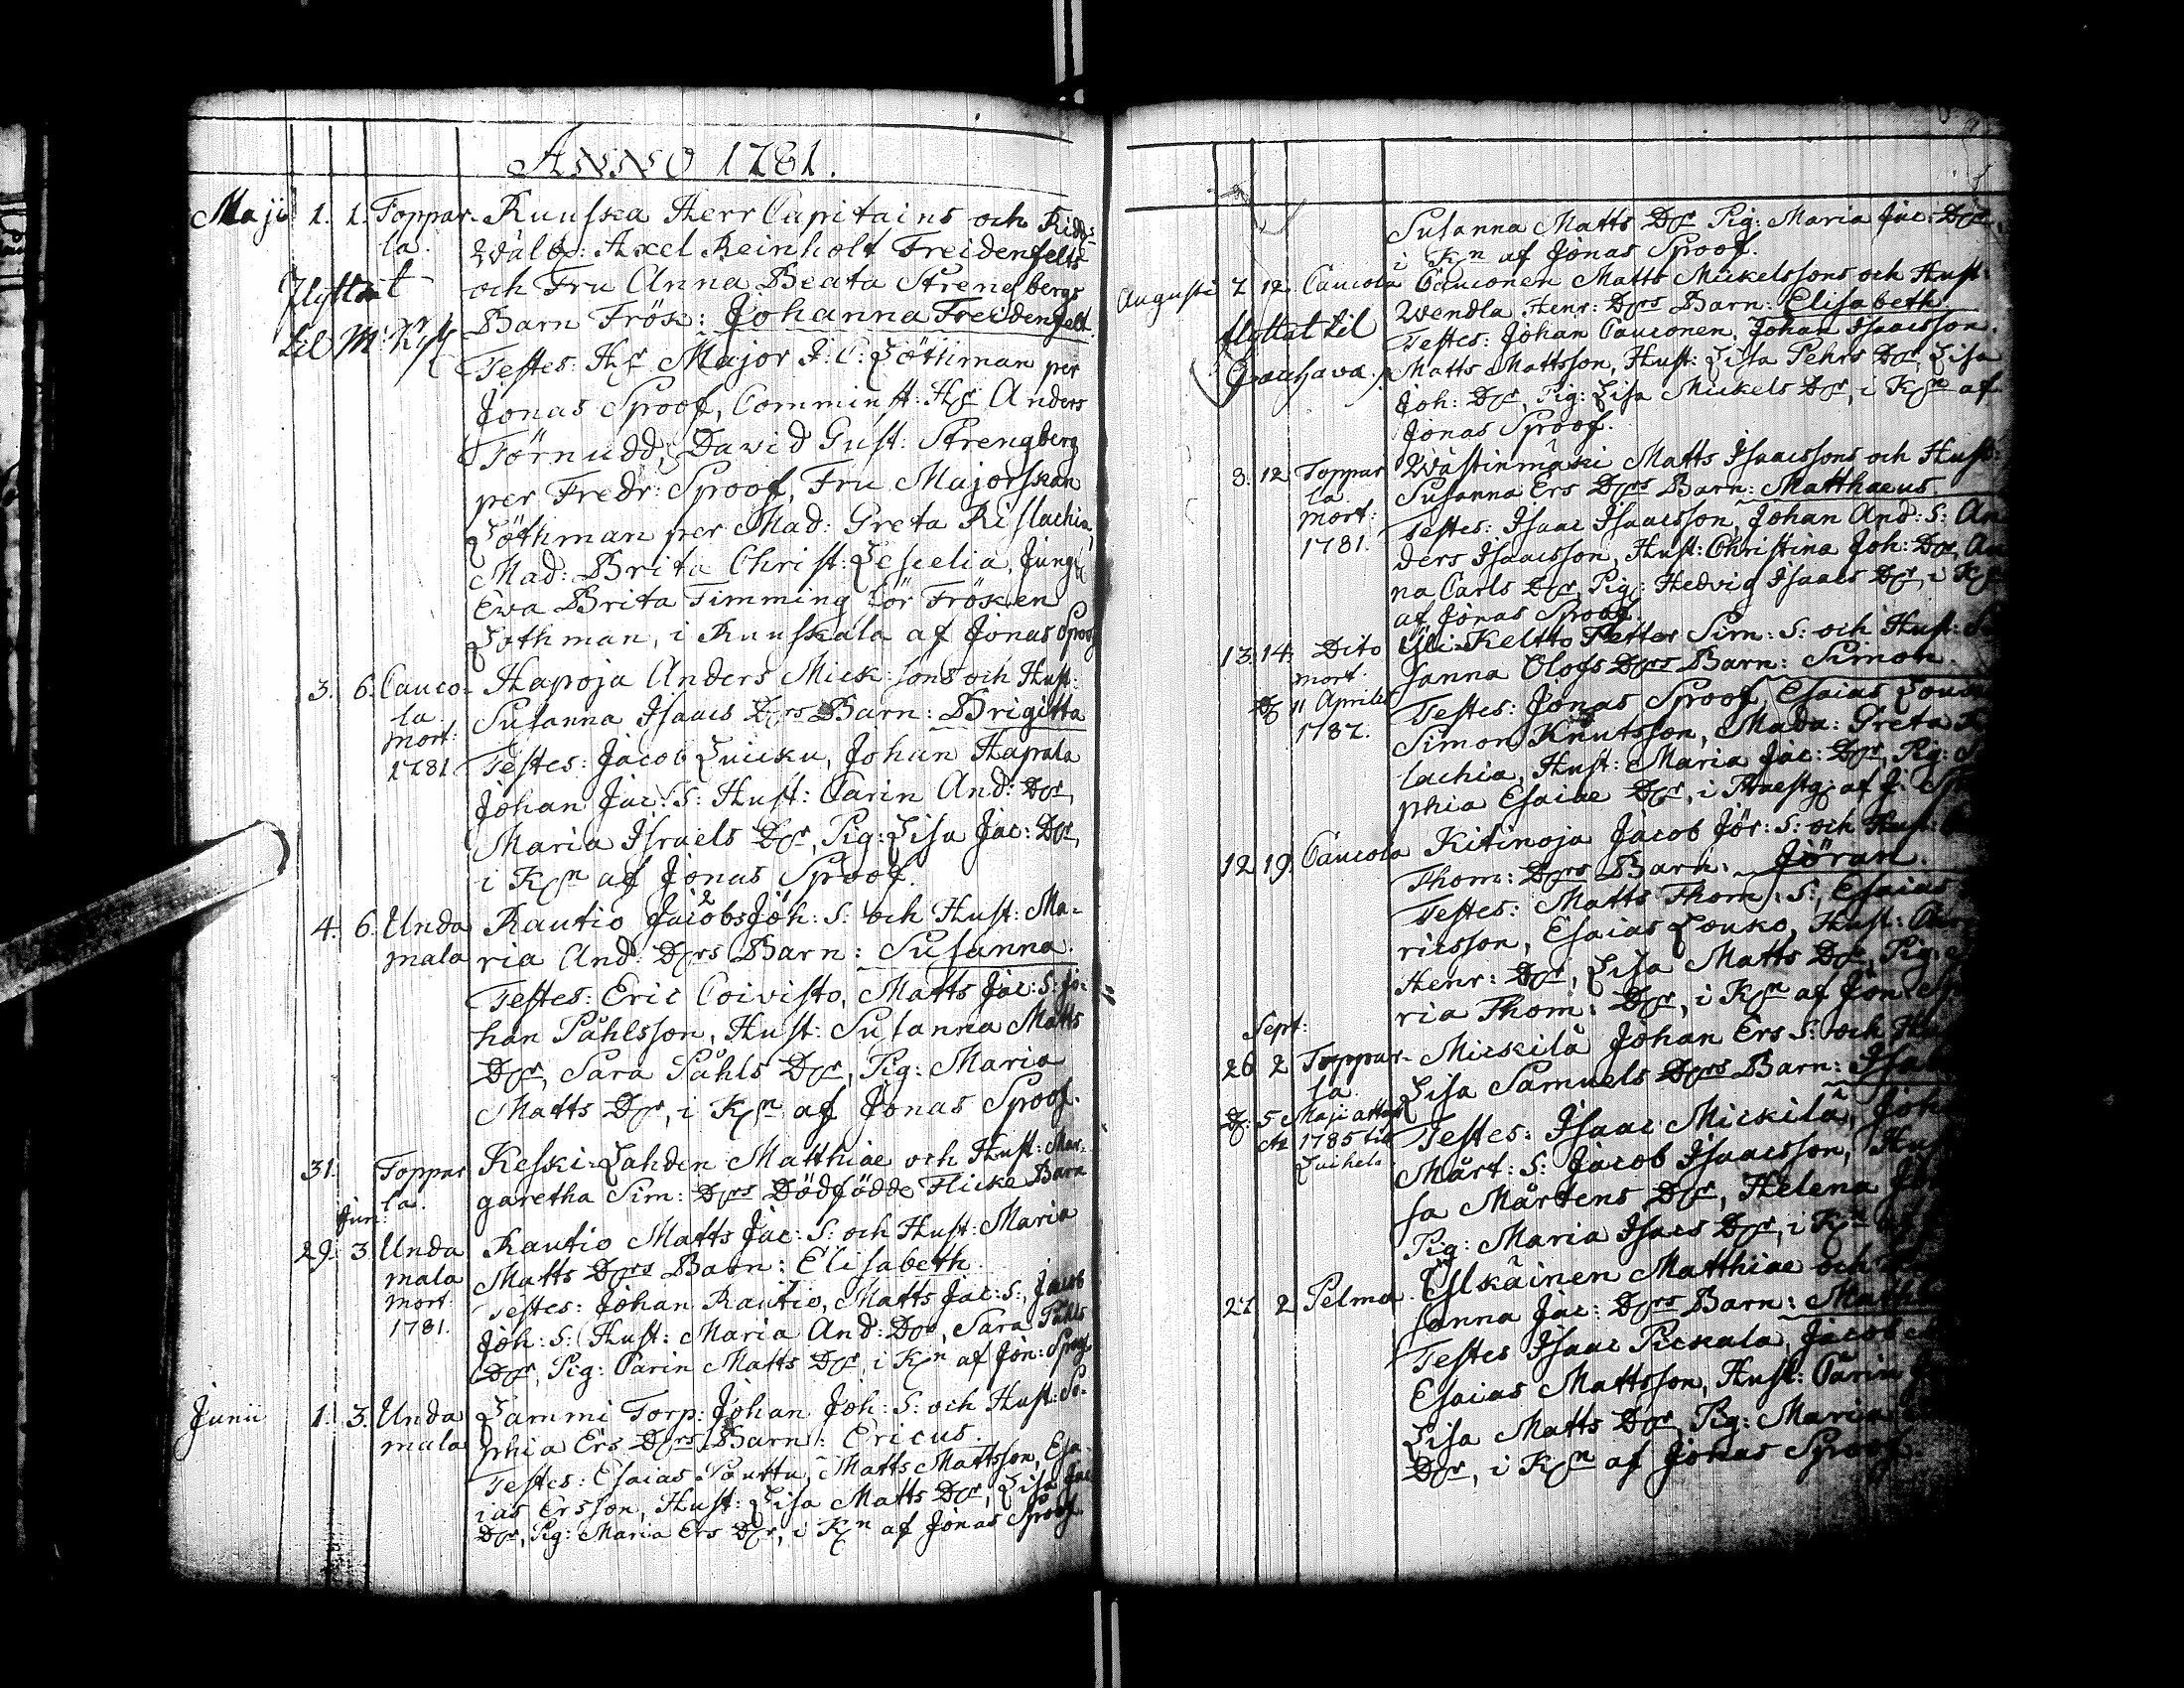 ANNO 1781.
Maji 1. 1. Toppar- Ruuska Herr Capitains och Ridd:
la. Wälb: Axel Reinholt Freidenfelts
Flyttat och Fru Anna Beata Strengbergs
til Barn Frök: Johanna Freidenfelt.
Testes: Hr Major J: C: Löthman per
Jonas Sproof, Comminst: Hr Anders
Törnudd, David Gust: Strengberg
per Fredr: Sproof, Fru Majorskan
Löthman per Mad: Greta Rislachia,
Mad: Brita Christ: Lescelia, Jungfr
Ewa Brita Timming för Fröken
Löthman, i Ruuskala af Jonas Sproof
3. 6. Cauco- Hapoja Anders Mick: sons och Hust:
la. Susanna Isaacs Drs Barn: Brigitta
mort: Testes: Jacob Luicku, Johan Hapala
1781 Johan Jac: S: Hust: Carin And: Dr,
Maria Israels Dr, Pig: Lisa Jac: Dr,
i Kn af Jonas Sproof.
4. 6. Unda Rautio Jacobs Joh: S: och Hust: Ma-
mala ria And: Drs Barn: Susanna.
Testes: Eric Coivisto, Matts Jac: S: Jo-
han Påhlsson, Hust: Susanna Matts
Dr, Sara Påhls Dr, Pig: Maria
Matts Dr, i Kn af Jonas Sproof.
31. Toppar Keski-Lahden Matthiae och Hust: Mar-
la. garetha Sim: Drs Dödfödde Flicke Barn
Jun:
29. 3. Unda Rautio Matts Jac: S: och Hust: Maria
mala Matts Drs Barn: Elisabeth.
mort: Testes: Johan Rautio, Matts Jac: S:, Jacob
1781. Joh: S: Hust: Maria And: Dr, Sara Påhls
Dr, Pig: Carin Matts Dr i Kn af Jon: Sproof
Junii 1. 3. Unda Lammi Torp: Johan Joh: S: och Hust: So-
mala phia Ers Drs Barn: Ericus.
Testes: Esaias Pouttu, Matts Mattsson, Esa-
ias Ersson, Hust: Lisa Matts Dr, Lisa Jac
Dr, Pig: Maria Ers Dr, i Kn af Jonas Sproof
Susanna Matts Dr Pig: Maria Jac: Dr,
i Kn af Jonas Sproof.
Augusti 7 12. Caucola Cauconen Matts Mickelssons och Hust
flyttat til Wendla Henr: Drs Barn: Elisabeth
Testes: Johan Cauconen, Johan Isaacsson.
Matts Mattsson, Hust: Lisa Pehrs Dr, Lisa
Joh: Dr, Pig: Lisa Mickels Dr, i Kn af
Jonas Sproof.
3. 12 Toppar Wästinmäki Matts Isaacssons och Hust
la. Susanna Ers Drs Barn: Matthaeus
mort: Testes: Isaac Isaacsson, Johan And: S: An
1781. ders Isaacsson, Hust: Christina Joh: Dr, An
na Carls Dr, Pig: Hedvig Isaacs Dr, i K
af Jonas Sproof.
13. 14. Dito Yli-Keltto Petter Sim: S: och Hust: Su
mort. sanna Olofs Drs Barn: Simon.
D 11 Aprilis Testes: Jonas Sproof, Esaias
1787. Simon Knutsson, Mada: Greta
lachia, Hust: Maria Jac: Dr, Pig:
phia Esaiae Dr, i Praestg: af J:
12 19. Caucola Kitinoja Jacob Jör: S: och Hust:
Thom: Drs Barn: Jöran.
Testes: Matts Thom: S:, Esaias
ricsson, Esaias Louko, Hust: Car
Henr: Dr, Lisa Matts Dr, Pig:
ria Thom: Dr, i Kn af Jon:
Sept:
26 2 Toppar- Mickilä Johan Ers S: och
la. Lisa Samuels Drs Barn:
D: 5 Maji Testes: Isaac Mickilä, Joh
1785 til Mårt: S: Jacob Isaacsson, Hu
sa Mårtens Dr, Helena
Pig: Maria Isacs Dr, i Kn
27 2 Pelma. Ylskäinen Matthiae och
sanna Jac: Drs Barn:
Testes Isaac Pickala, Jacob
Esaias Mattsson, Hust: Carin
Lisa Matts Dr, Pig: Maria
Dr, i Kn af Jonas Sproof.